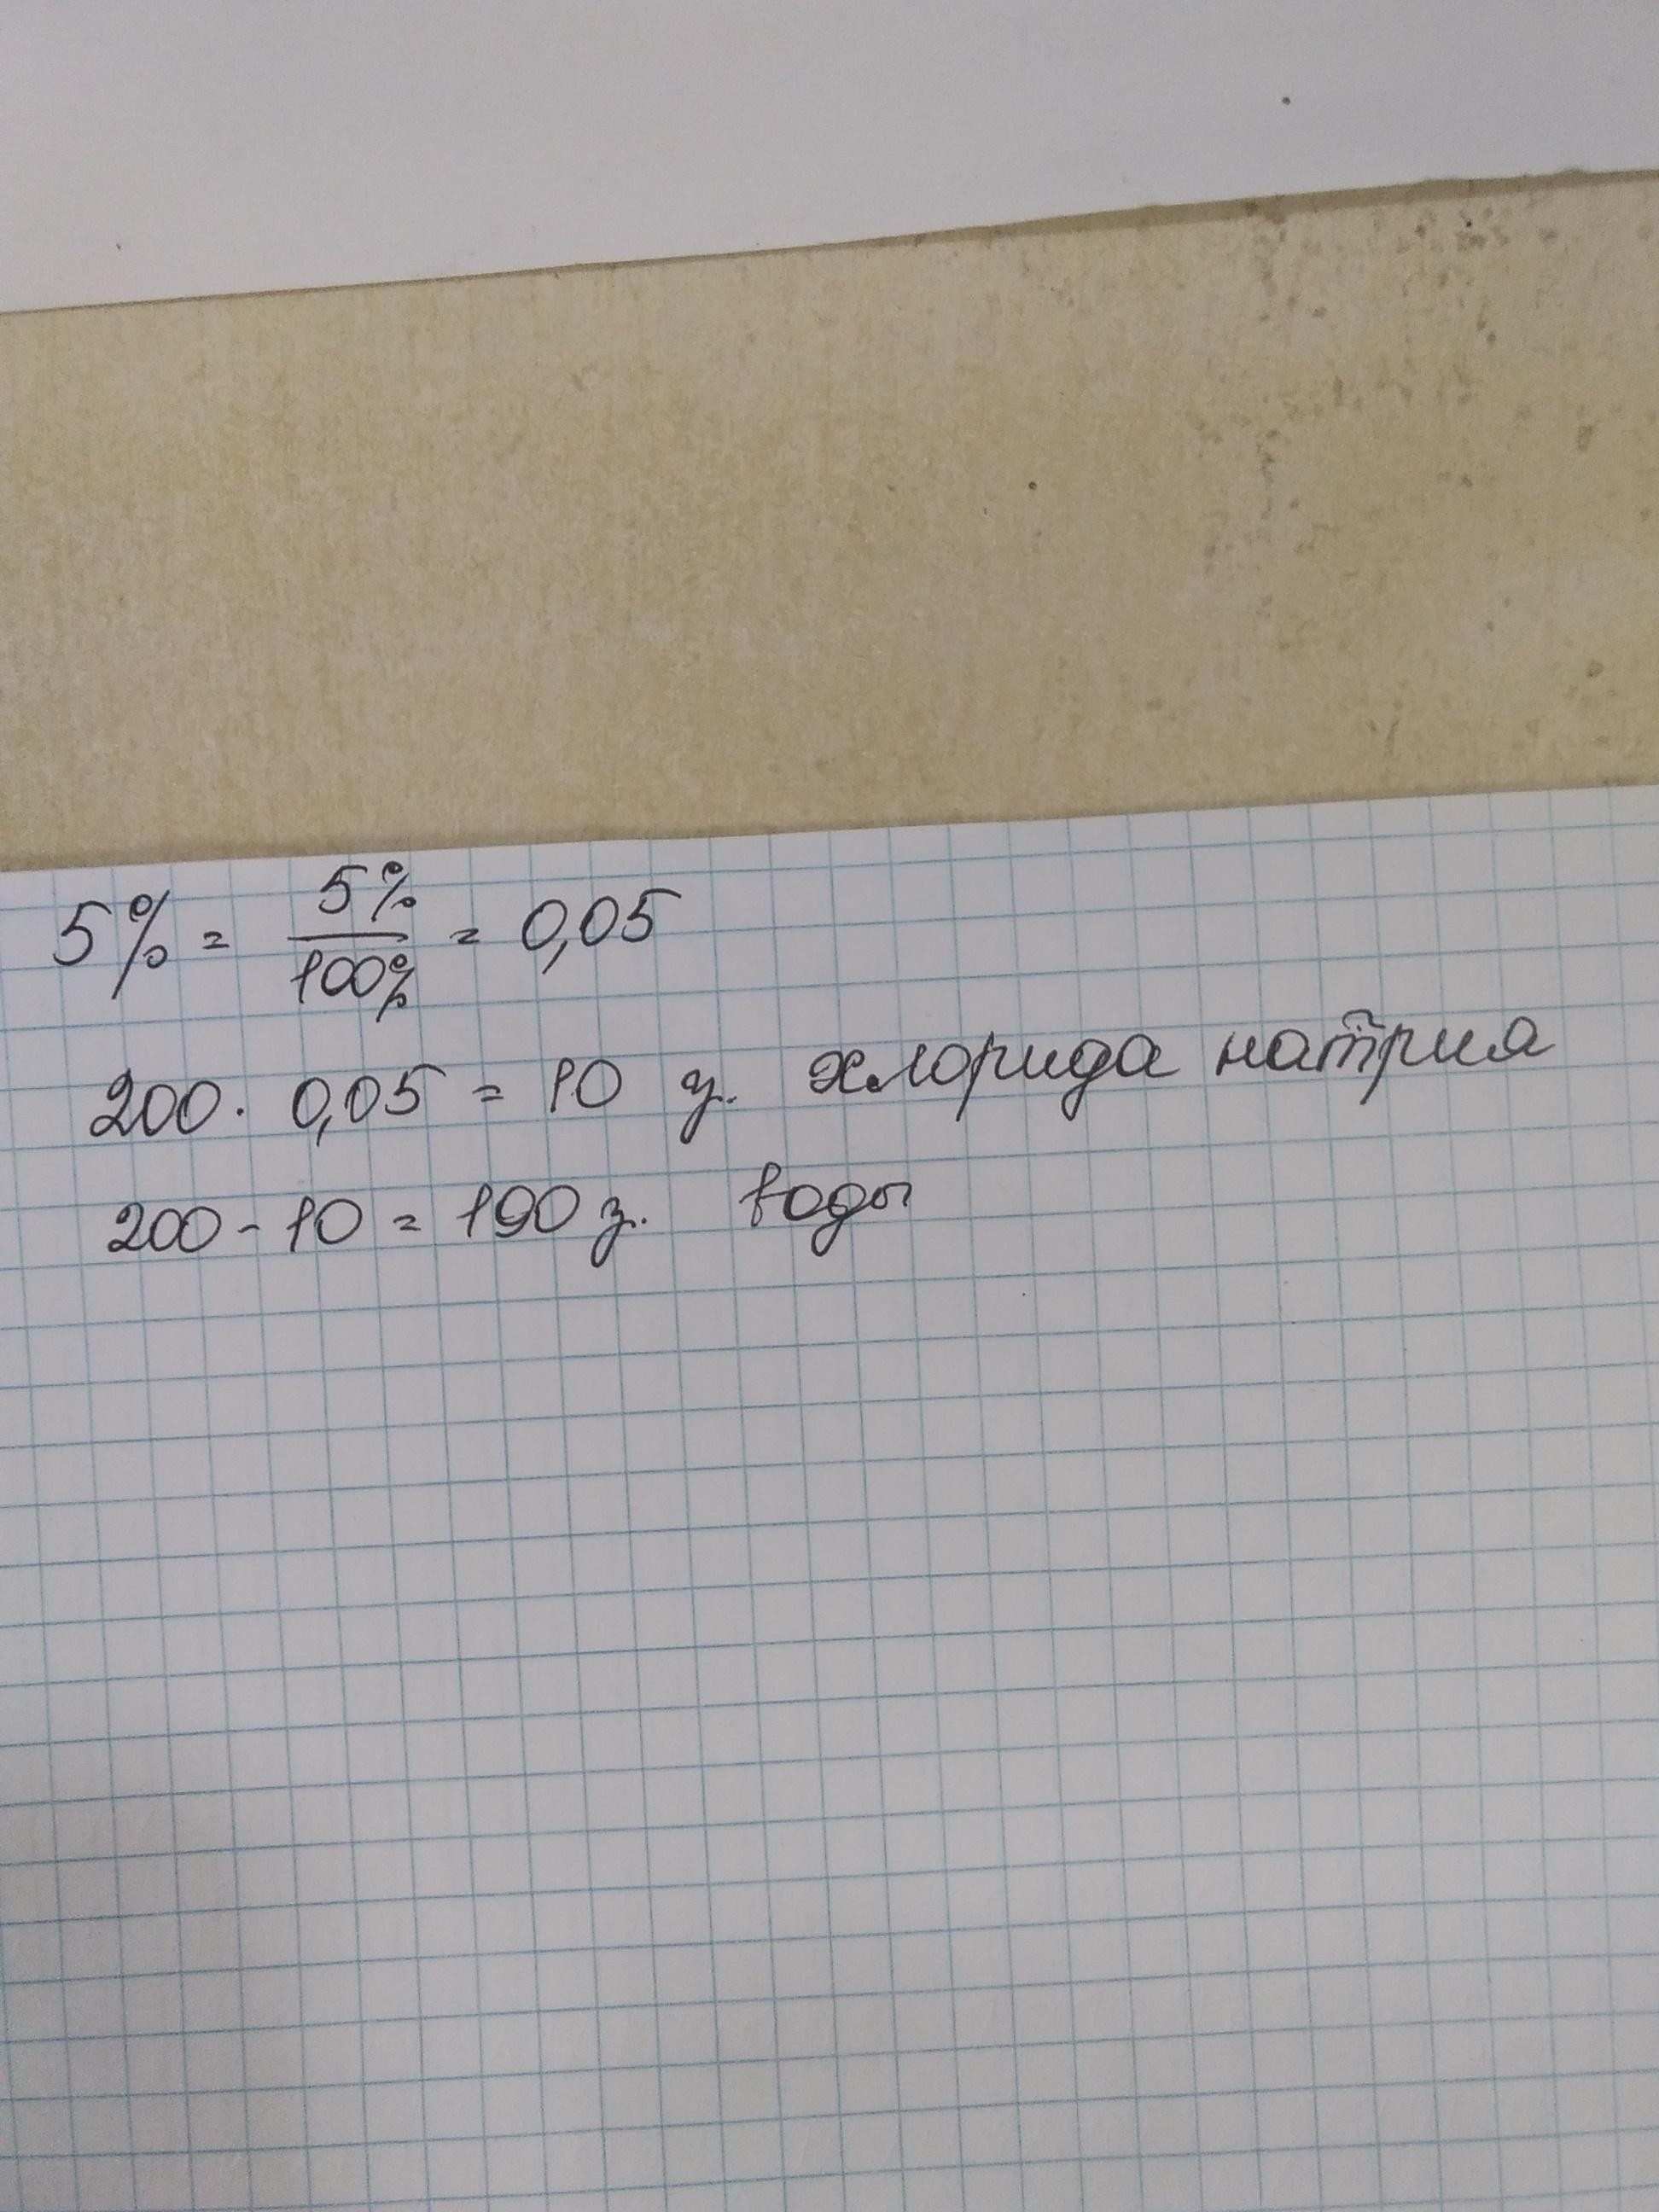 5% = 5%/100% = 0,05
200 · 0,05 = 10 г. хлорида натрия
200 - 10 = 190 г. воды